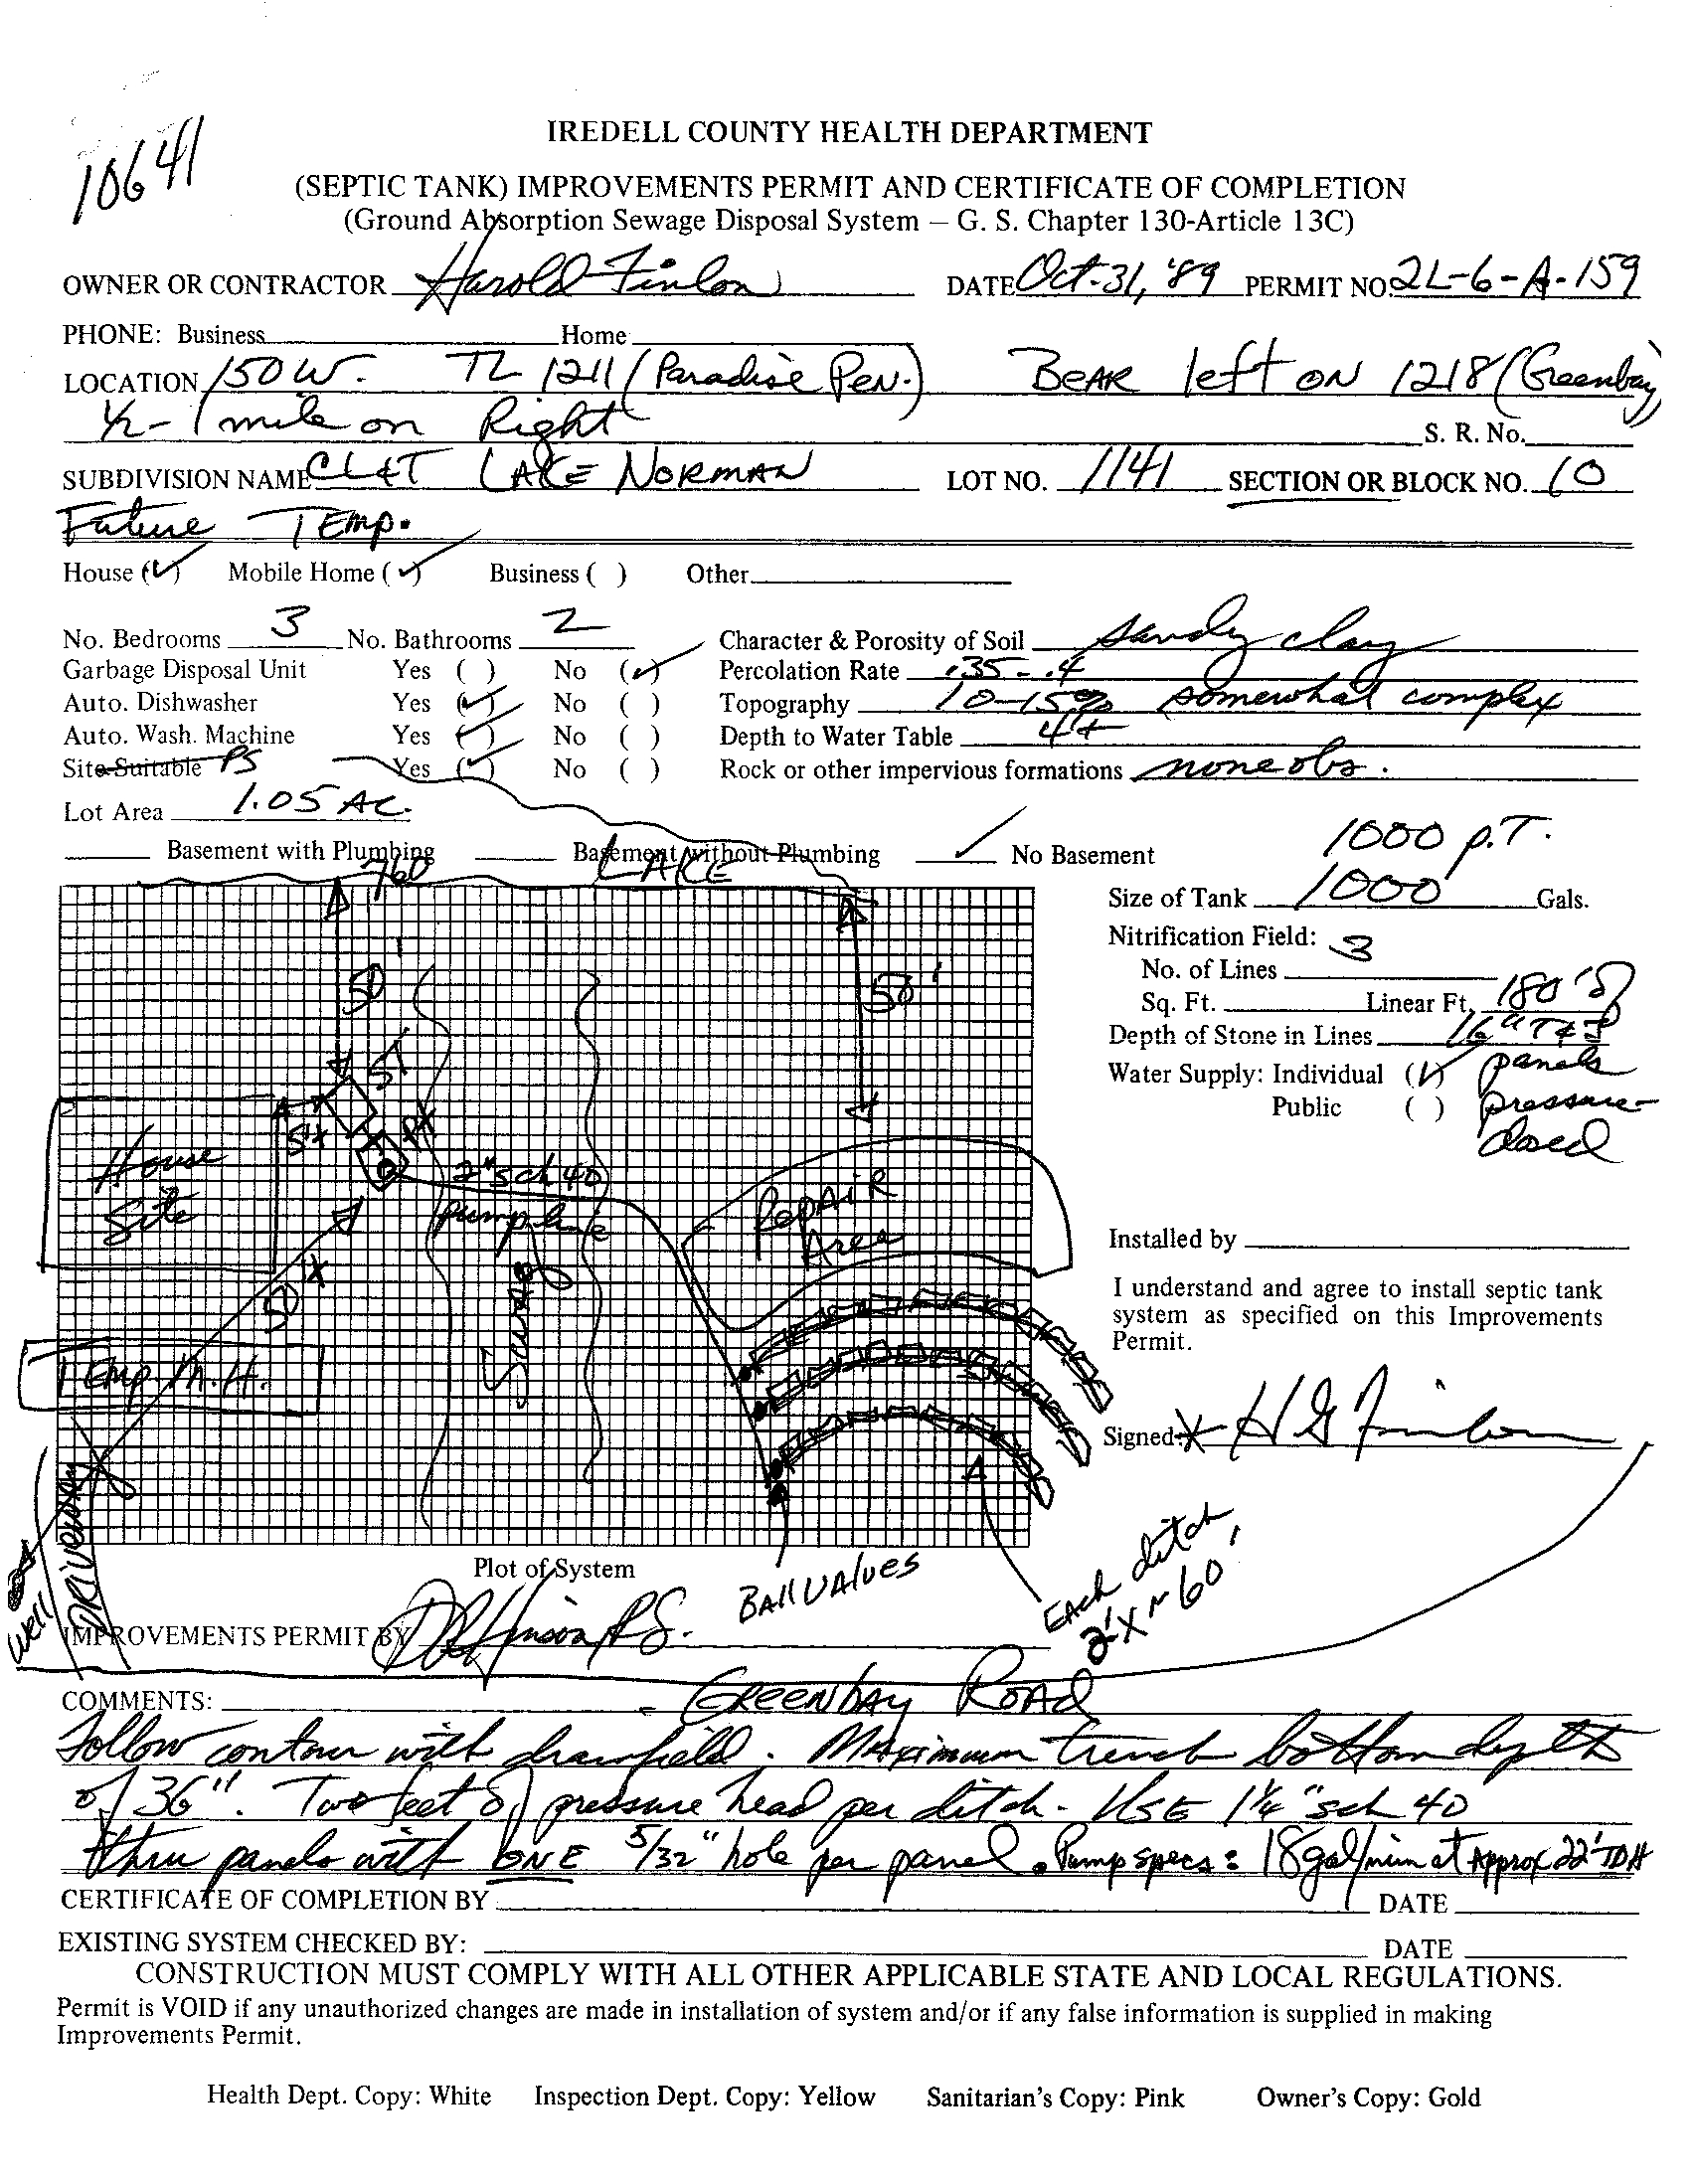 10641
IREDELL COUNTY HEALTH DEPARTMENT
(SEPTIC TANK) IMPROVEMENTS PERMIT AND CERTIFICATE OF COMPLETION
(Ground Absorption Sewage Disposal System — G. S. Chapter 130-Article 13C)
OWNER OR CONTRACTOR Harold Finlon DATE Oct. 31, '89 PERMIT NO. 2L-6-A-159
PHONE: Business Home
LOCATION 150 W. TL 1211 (Paradise Pen.) BEAR left ON 1218 (Greenbay)
1/2 - 1 mile on Right S. R. No.
SUBDIVISION NAME CL&T LAKE NORMAN LOT NO. 1141 SECTION OR BLOCK NO. 10
Future TEMP.
House (✓) Mobile Home (✓) Business ( ) Other
No. Bedrooms 3 No. Bathrooms 2 Character & Porosity of Soil sandy clay
Garbage Disposal Unit Yes ( ) No (✓) Percolation Rate .35 - .4
Auto. Dishwasher Yes (✓) No ( ) Topography 10-15% somewhat complex
Auto. Wash. Machine Yes (✓) No ( ) Depth to Water Table 4+
Site Suitable PS Yes (✓) No ( ) Rock or other impervious formations none obs.
Lot Area 1.05 AC.
Basement with Plumbing Basement without Plumbing ✓ No Basement
1000 p.T.
760 LAKE
Size of Tank 1000 Gals.
Nitrification Field:
No. of Lines 3
Sq. Ft. Linear Ft. 180' of
Depth of Stone in Lines 16" T&J
panels
Water Supply: Individual (✓)
Public ( )
pressure-
dosed
50'
50'
ST
5'X
PX
House
Site
2" sch 40
pump line
Repair
Area
50'X
Swale
Temp. M.H.
Installed by
I understand and agree to install septic tank
system as specified on this Improvements
Permit.
Signed X H G Finlon
Driveway
well
Plot of System
Ball VAlves
Each ditch
2'X~60'
IMPROVEMENTS PERMIT BY
Greenbay Road
COMMENTS:
Follow contour with drainfield. Maximum trench bottom depth
of 36". Two feet of pressure head per ditch. USE 1 1/4" sch 40
thru panels with ONE 5/32" hole per panel. Pump specs: 18 gal/min at Approx 22' TDH
CERTIFICATE OF COMPLETION BY DATE
EXISTING SYSTEM CHECKED BY: DATE
CONSTRUCTION MUST COMPLY WITH ALL OTHER APPLICABLE STATE AND LOCAL REGULATIONS.
Permit is VOID if any unauthorized changes are made in installation of system and/or if any false information is supplied in making
Improvements Permit.
Health Dept. Copy: White Inspection Dept. Copy: Yellow Sanitarian's Copy: Pink Owner's Copy: Gold